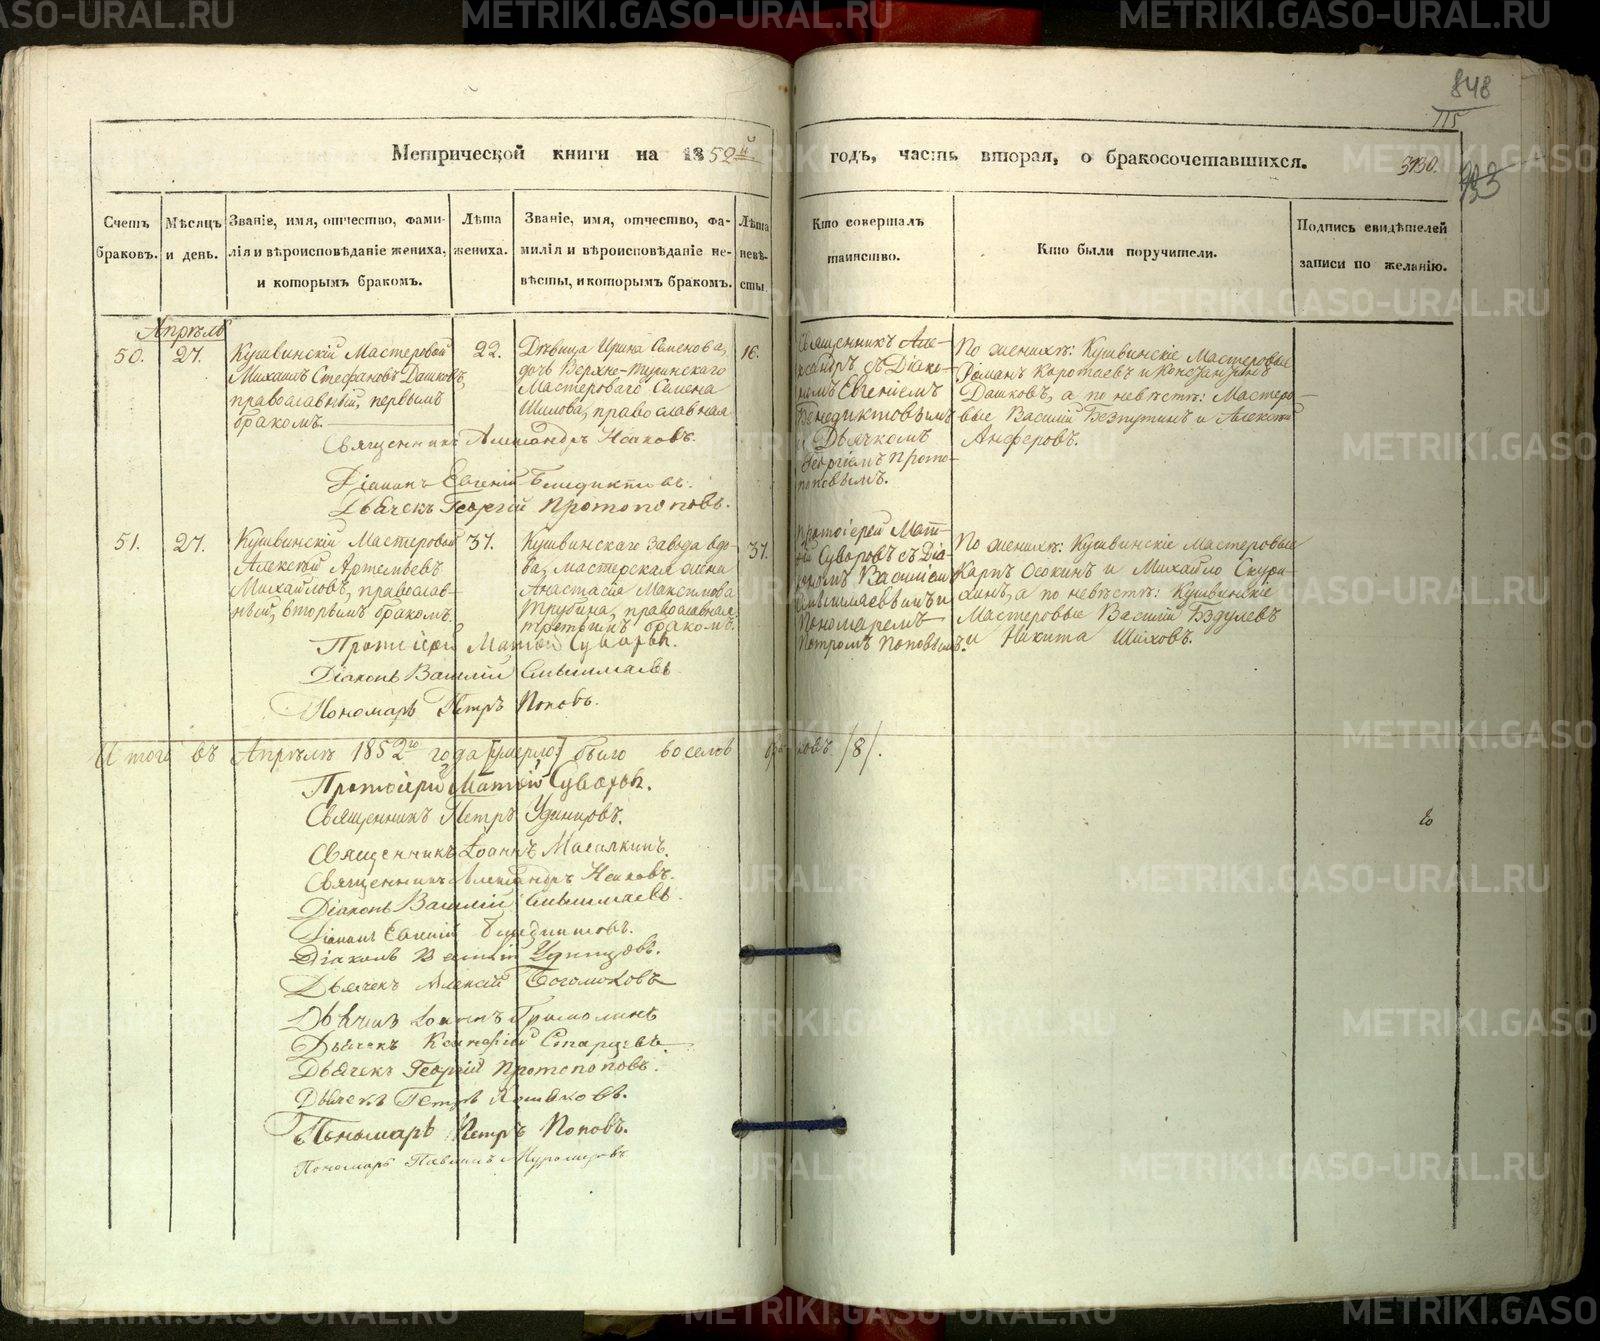 848
115
Метрической книги на 1852й годъ, часть вторая, о бракосочетавшихся.
3130.
Счетъ браковъ.
Мѣсяцъ и день.
Званіе, имя, отчество, фами-
лія и вѣроисповѣданіе жениха,
и которымъ бракомъ.
Лѣта жениха.
Званіе, имя, отчество, фа-
милія и вѣроисповѣданіе не-
вѣсты, и которымъ бракомъ.
Лѣта невѣ-
сты.
Кто совершалъ
таинство.
Кто были поручители.
Подпись свидѣтелей
записи по желанію.
Апрѣль
50.
27.
Кушвинскій Мастеровой
Михаилъ Стефановъ Дашковъ,
православный, первымъ
бракомъ.
22.
Дѣвица Ирина Семенова,
дочь Верхно-Туринскаго
Мастероваго Семена
Шилова, православная
16.
Священникъ Але-
ксандръ съ Діако-
номъ Евгеніемъ
Бенедиктовымъ
и Дьячкомъ
Георгіемъ Прото-
поповымъ.
По женихѣ: Кушвинскіе Мастеровые
Романъ Коротаевъ и Константинъ
Дашковъ, а по невѣстѣ: Мастеро-
вые Василій Безпутинъ и Алексѣй
Анферовъ.
Священникъ Александръ Исаковъ.
Діаконъ Евгеній Бенедиктовъ.
Дьячекъ Георгій Протопоповъ.
51.
27.
Кушвинскій Мастеровой
Алексѣй Артемьевъ
Михайловъ, православ-
ный, вторымъ бракомъ.
37.
Кушвинскаго Завода вдо-
ва, мастерская жена
Анастасія Максимова
Трубина, православная
третьимъ бракомъ.
37.
Протоіерей Мат-
ѳій Суворовъ съ Діа-
кономъ Василіем
и
Пономаремъ
Петромъ Поповымъ.
По женихѣ: Кушвинскіе Мастеровые
Карпъ Осокинъ и Михайло Скури-
хинъ, а по невѣстѣ: Кушвинскіе
Мастеровые Василій Бздулевъ
и Никита Шиховъ.
Протоіерей Матѳій Суворовъ.
Діаконъ Василій
Пономарь Петръ Поповъ.
Итого въ Апрѣлѣ 1852го года [умерло] было восемь браковъ /8/.
Протоіерей Матѳій Суворовъ.
Священникъ Петръ Удинцовъ.
Священникъ Іоаннъ Масалкинъ.
Священникъ Александръ Исаковъ.
Діаконъ Василій
Діаконъ Евгеній Бенедиктовъ.
Діаконъ Василій Удинцовъ.
Дьячекъ Алексій Богомоловъ
Дьячекъ Іоаннъ
Дьячекъ Ксенофій Старцевъ.
Дьячекъ Георгій Протопоповъ.
Дьячекъ Петръ
Пономарь Петръ Поповъ.
Пономарь
METRIKI.GASO-URAL.RU